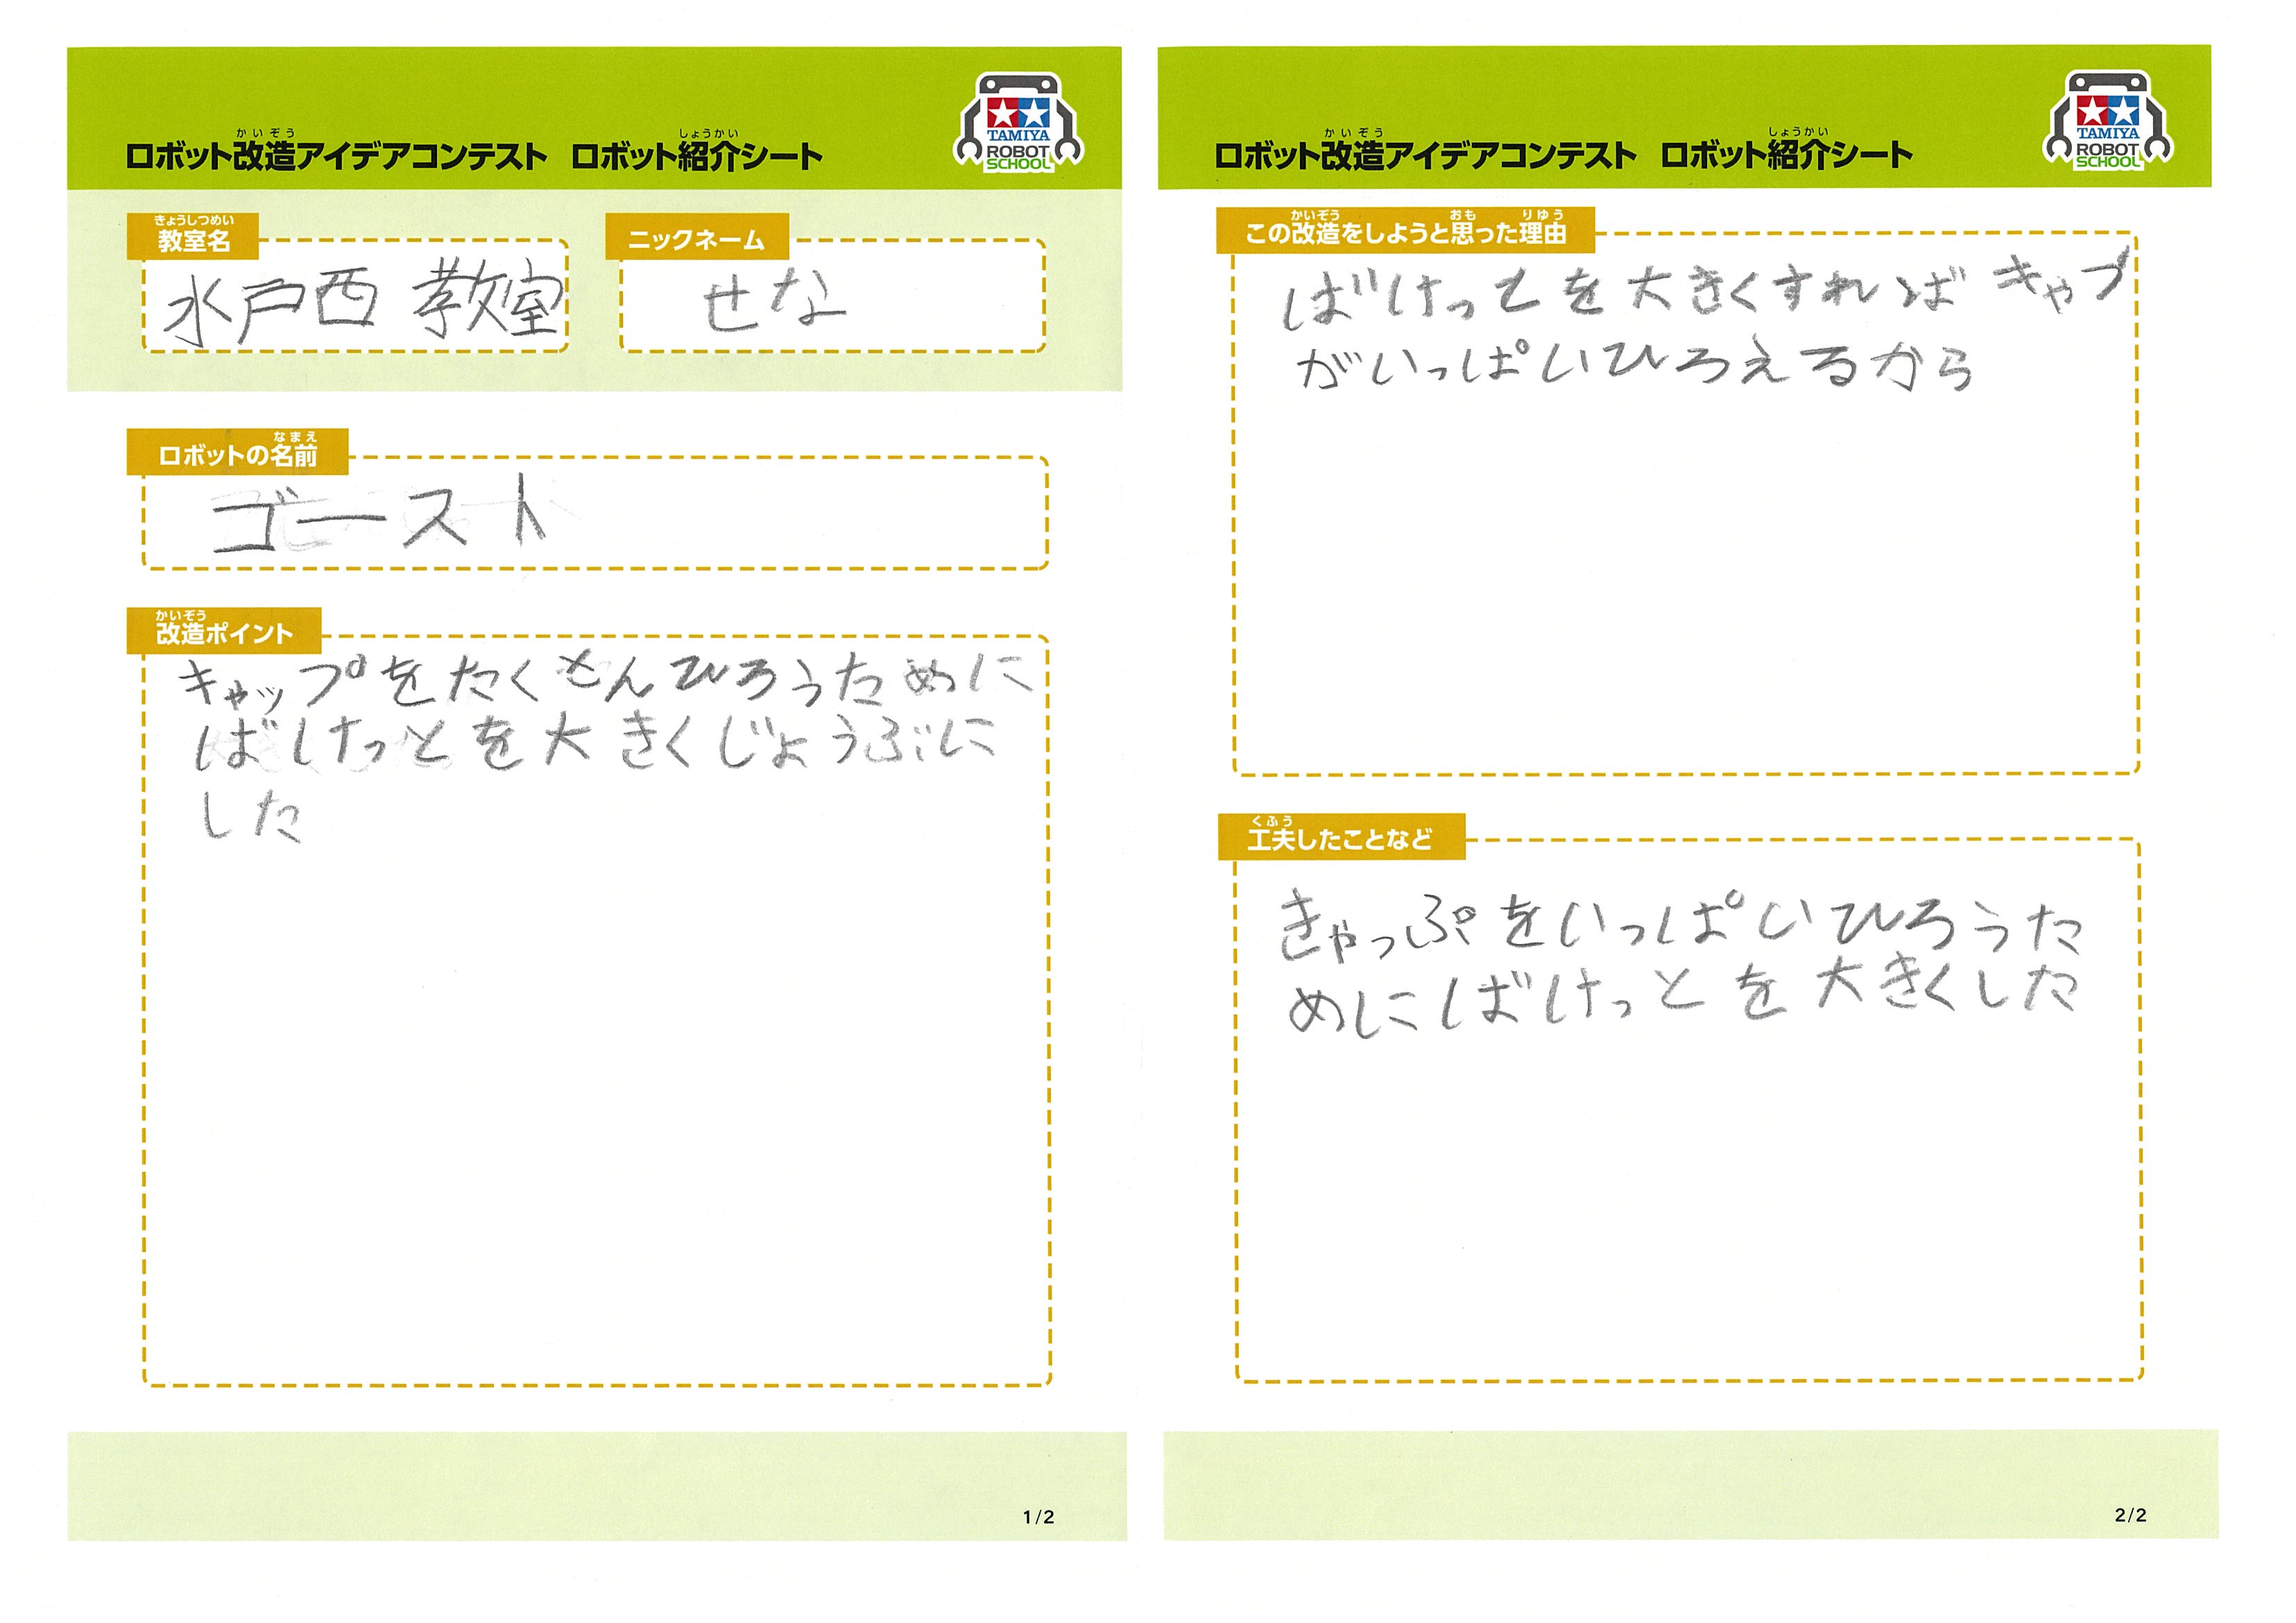 ロボット改造アイデアコンテスト ロボット紹介シート
かいぞう
しょうかい
TAMIYA
ROBOT
SCHOOL
きょうしつめい
教室名
水戸西 教室
ニックネーム
せな
なまえ
ロボットの名前
ゴースト
かいぞう
改造ポイント
キャップをたくさんひろうために
ばけっとを大きくじょうぶに
した
1/2
かいぞう
しょうかい
ロボット改造アイデアコンテスト ロボット紹介シート
TAMIYA
ROBOT
SCHOOL
かいぞう おも りゆう
この改造をしようと思った理由
ばけってを大きくすればキャプ
がいっぱいひろえるから
くふう
工夫したことなど
きゃっぷをいっぱいひろうた
めにばけっとを大きくした
2/2